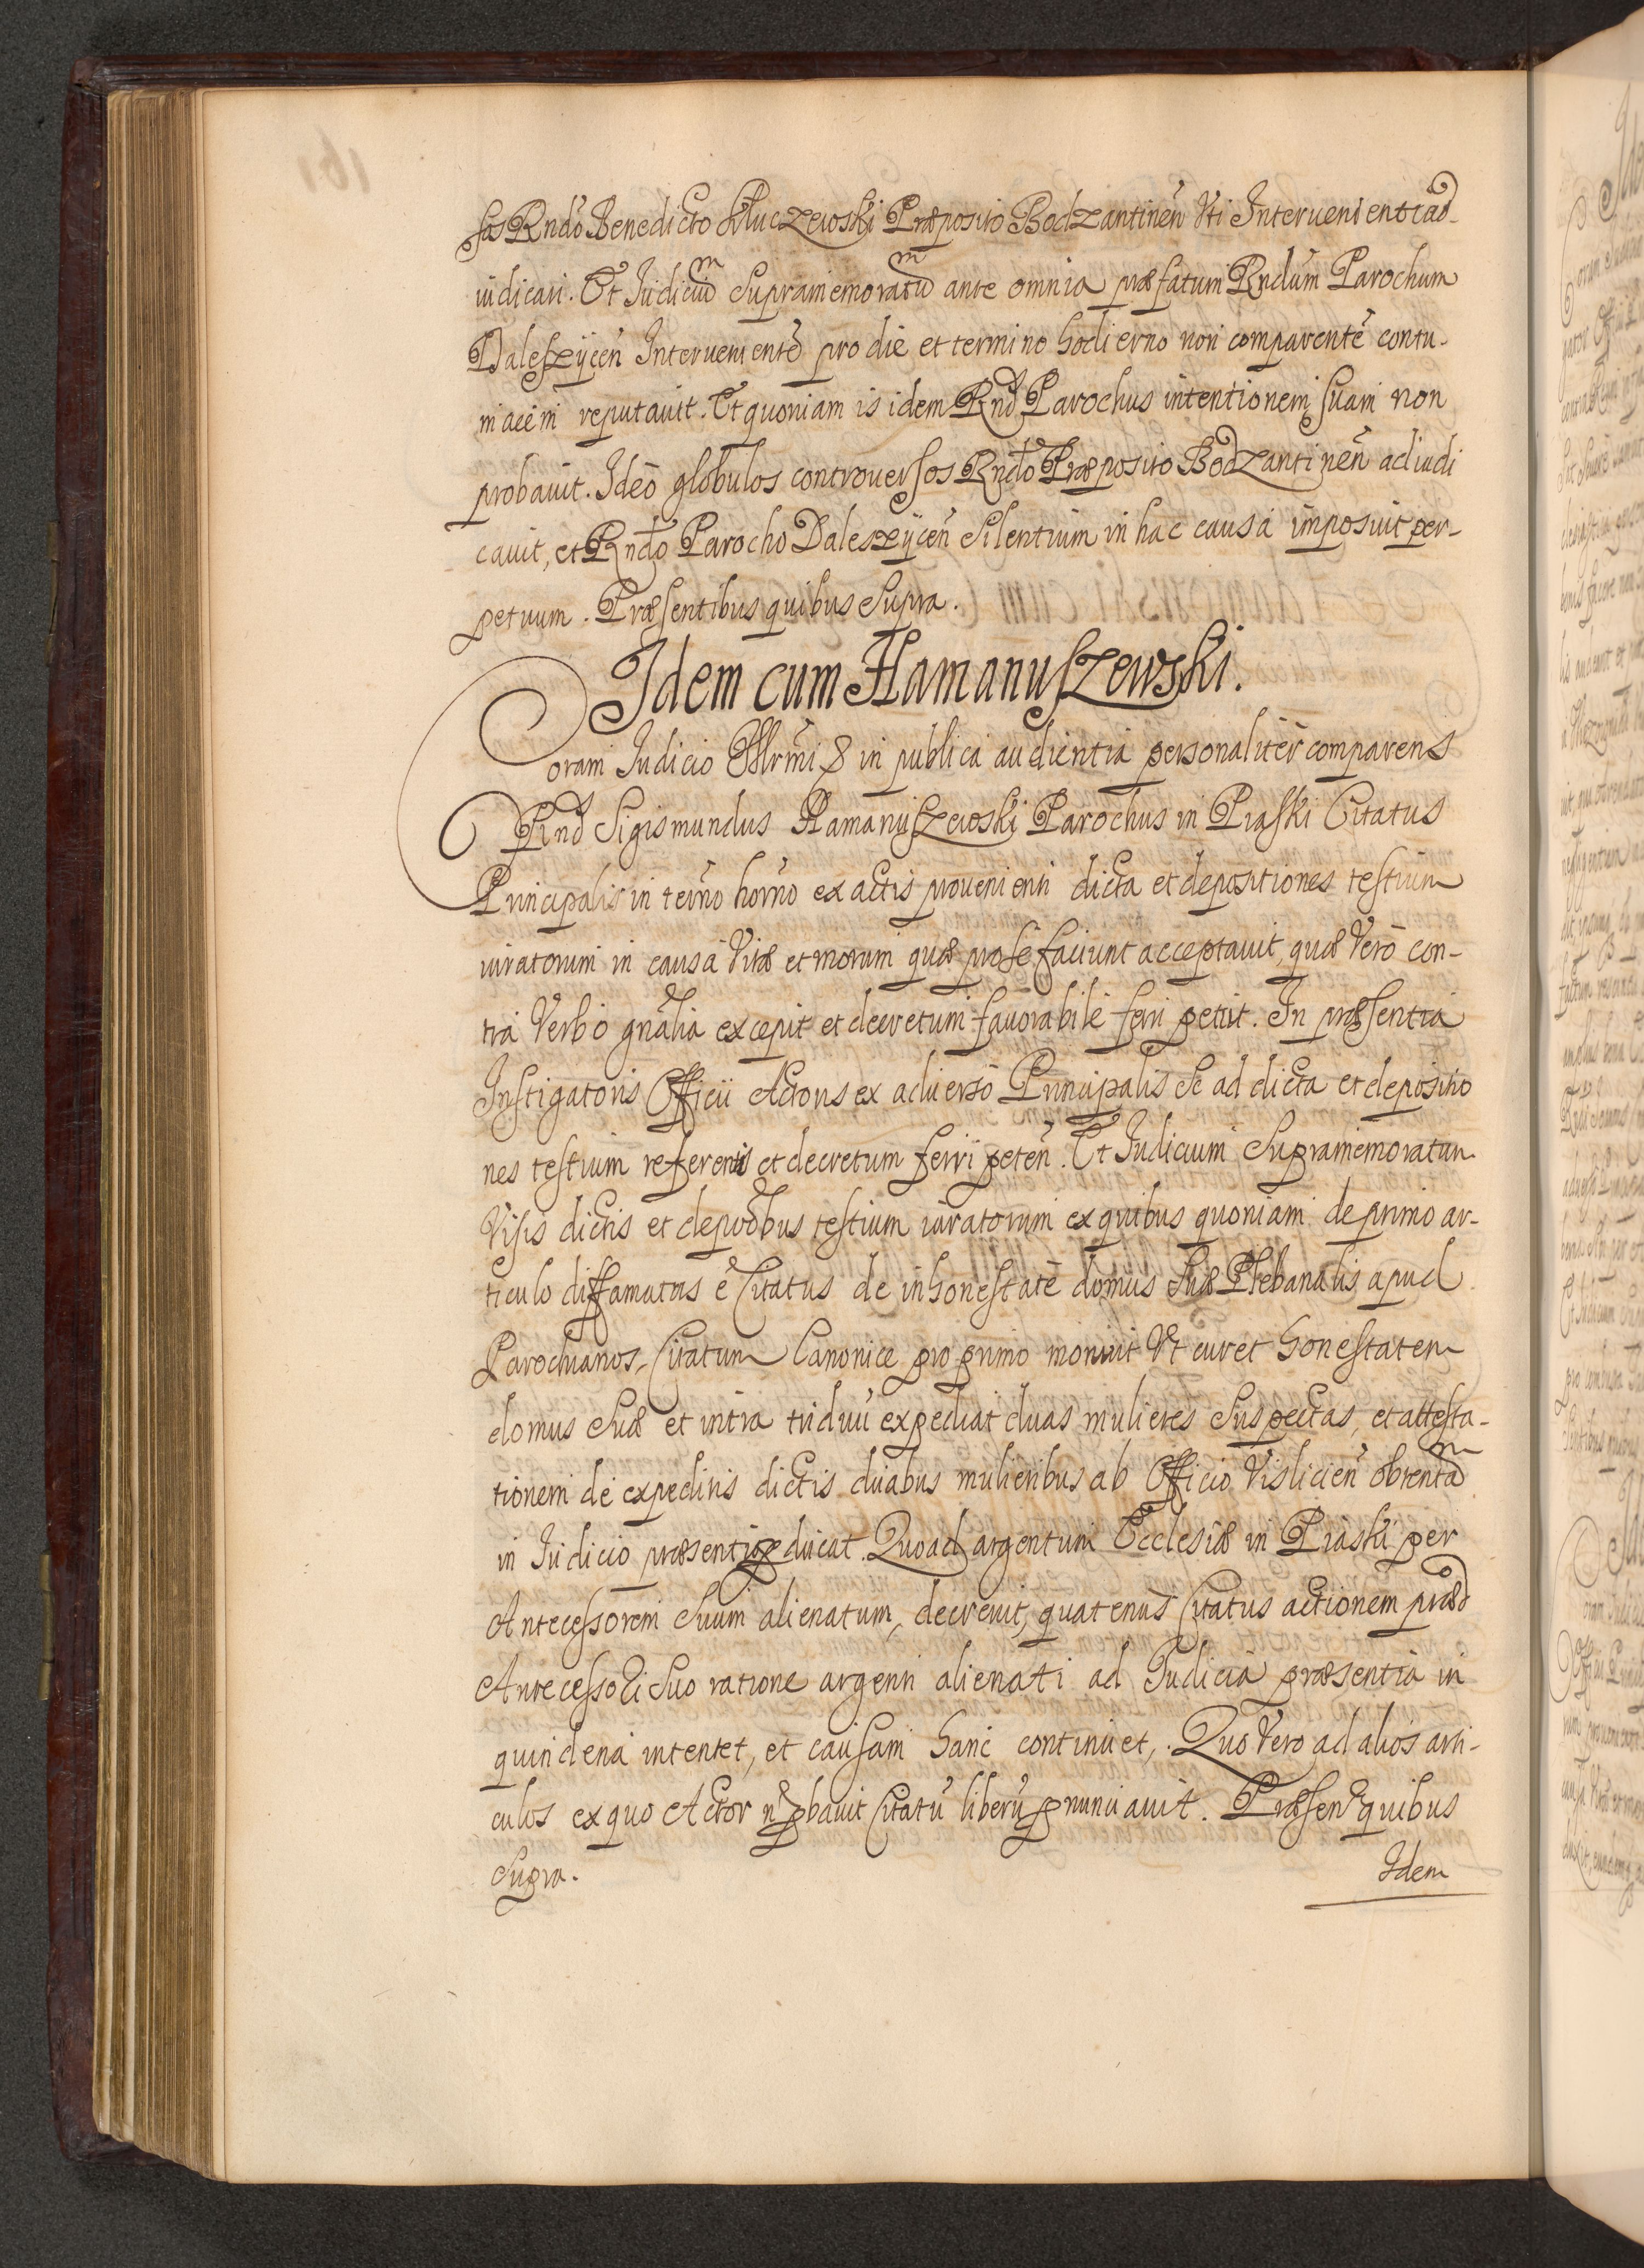 sos Rndo Benedicto Kluczewski Præposito Bodzantinen Uti Intervenienti ad-
iudicari. Et Iudiciū Supramemoratū ante omnia præfatum Rndum Parochum
Daleszÿcen Intervenientē pro die et termino hodierno non comparentē contu-
macem reputavit. Et quoniam is idem Rnd Parochus intentionem suam non
probavit. Ideo globulos controversos Rndo Præposito Bodzantinen adiudi
cavit, et Rndo Parocho Daleszÿcen Silentium in hac causa imposuit per-
petuum. Præsentibus quibus Supra.
Idem cum Hamanuszewski.
Coram Iudicio Illrmi & in publica audientia personaliter comparens
Rnd Sigismundus Hamanuszewski Parochus in Piaski Citatus
Principalis in terno horno ex actis provenienti dicta et depositiones testium
iuratorum in causa Vitæ et morum quæ pro se faciunt acceptavit, quæ Vero con-
tra Verbo gnalia excepit et decretum favorabile ferri petiit. In præsentia
Instigatoris Officii Actoris ex adverso Principalis Se ad dicta et depositio
nes testium referentis et decretum ferri peten. Et Iudicium Supramemoratum
Visis dictis et depoõbus testium iuratorum ex quibus quoniam de primo ar-
ticulo diffamatus ē Citatus de inhonestate domus Suæ Plebanalis apud
Parochianos, Citatum Canonice pro primo monuit Ut curet honestatem
domus Suæ et intra triduū expediat duas mulieres Suspectas, et attesta-
tionem de expeditis dictis duabus mulieribus ab Officio Visliciēn obtentā
in Iudicio præsenti educat. Quoad argentum Ecclesiæ in Piaski per
Antecessorem Suum alienatum, decrevit, quatenus Citatus actionem præd
Antecessori Suo ratione argenti alienati ad Iudicia præsentia in
quindena intentet, et causam hanc continuet,. Quo Vero ad alios arti-
culos ex quo Actor n pbavit Citatū liberū pnunciavit. Præsen quibus
Supra.
Idem